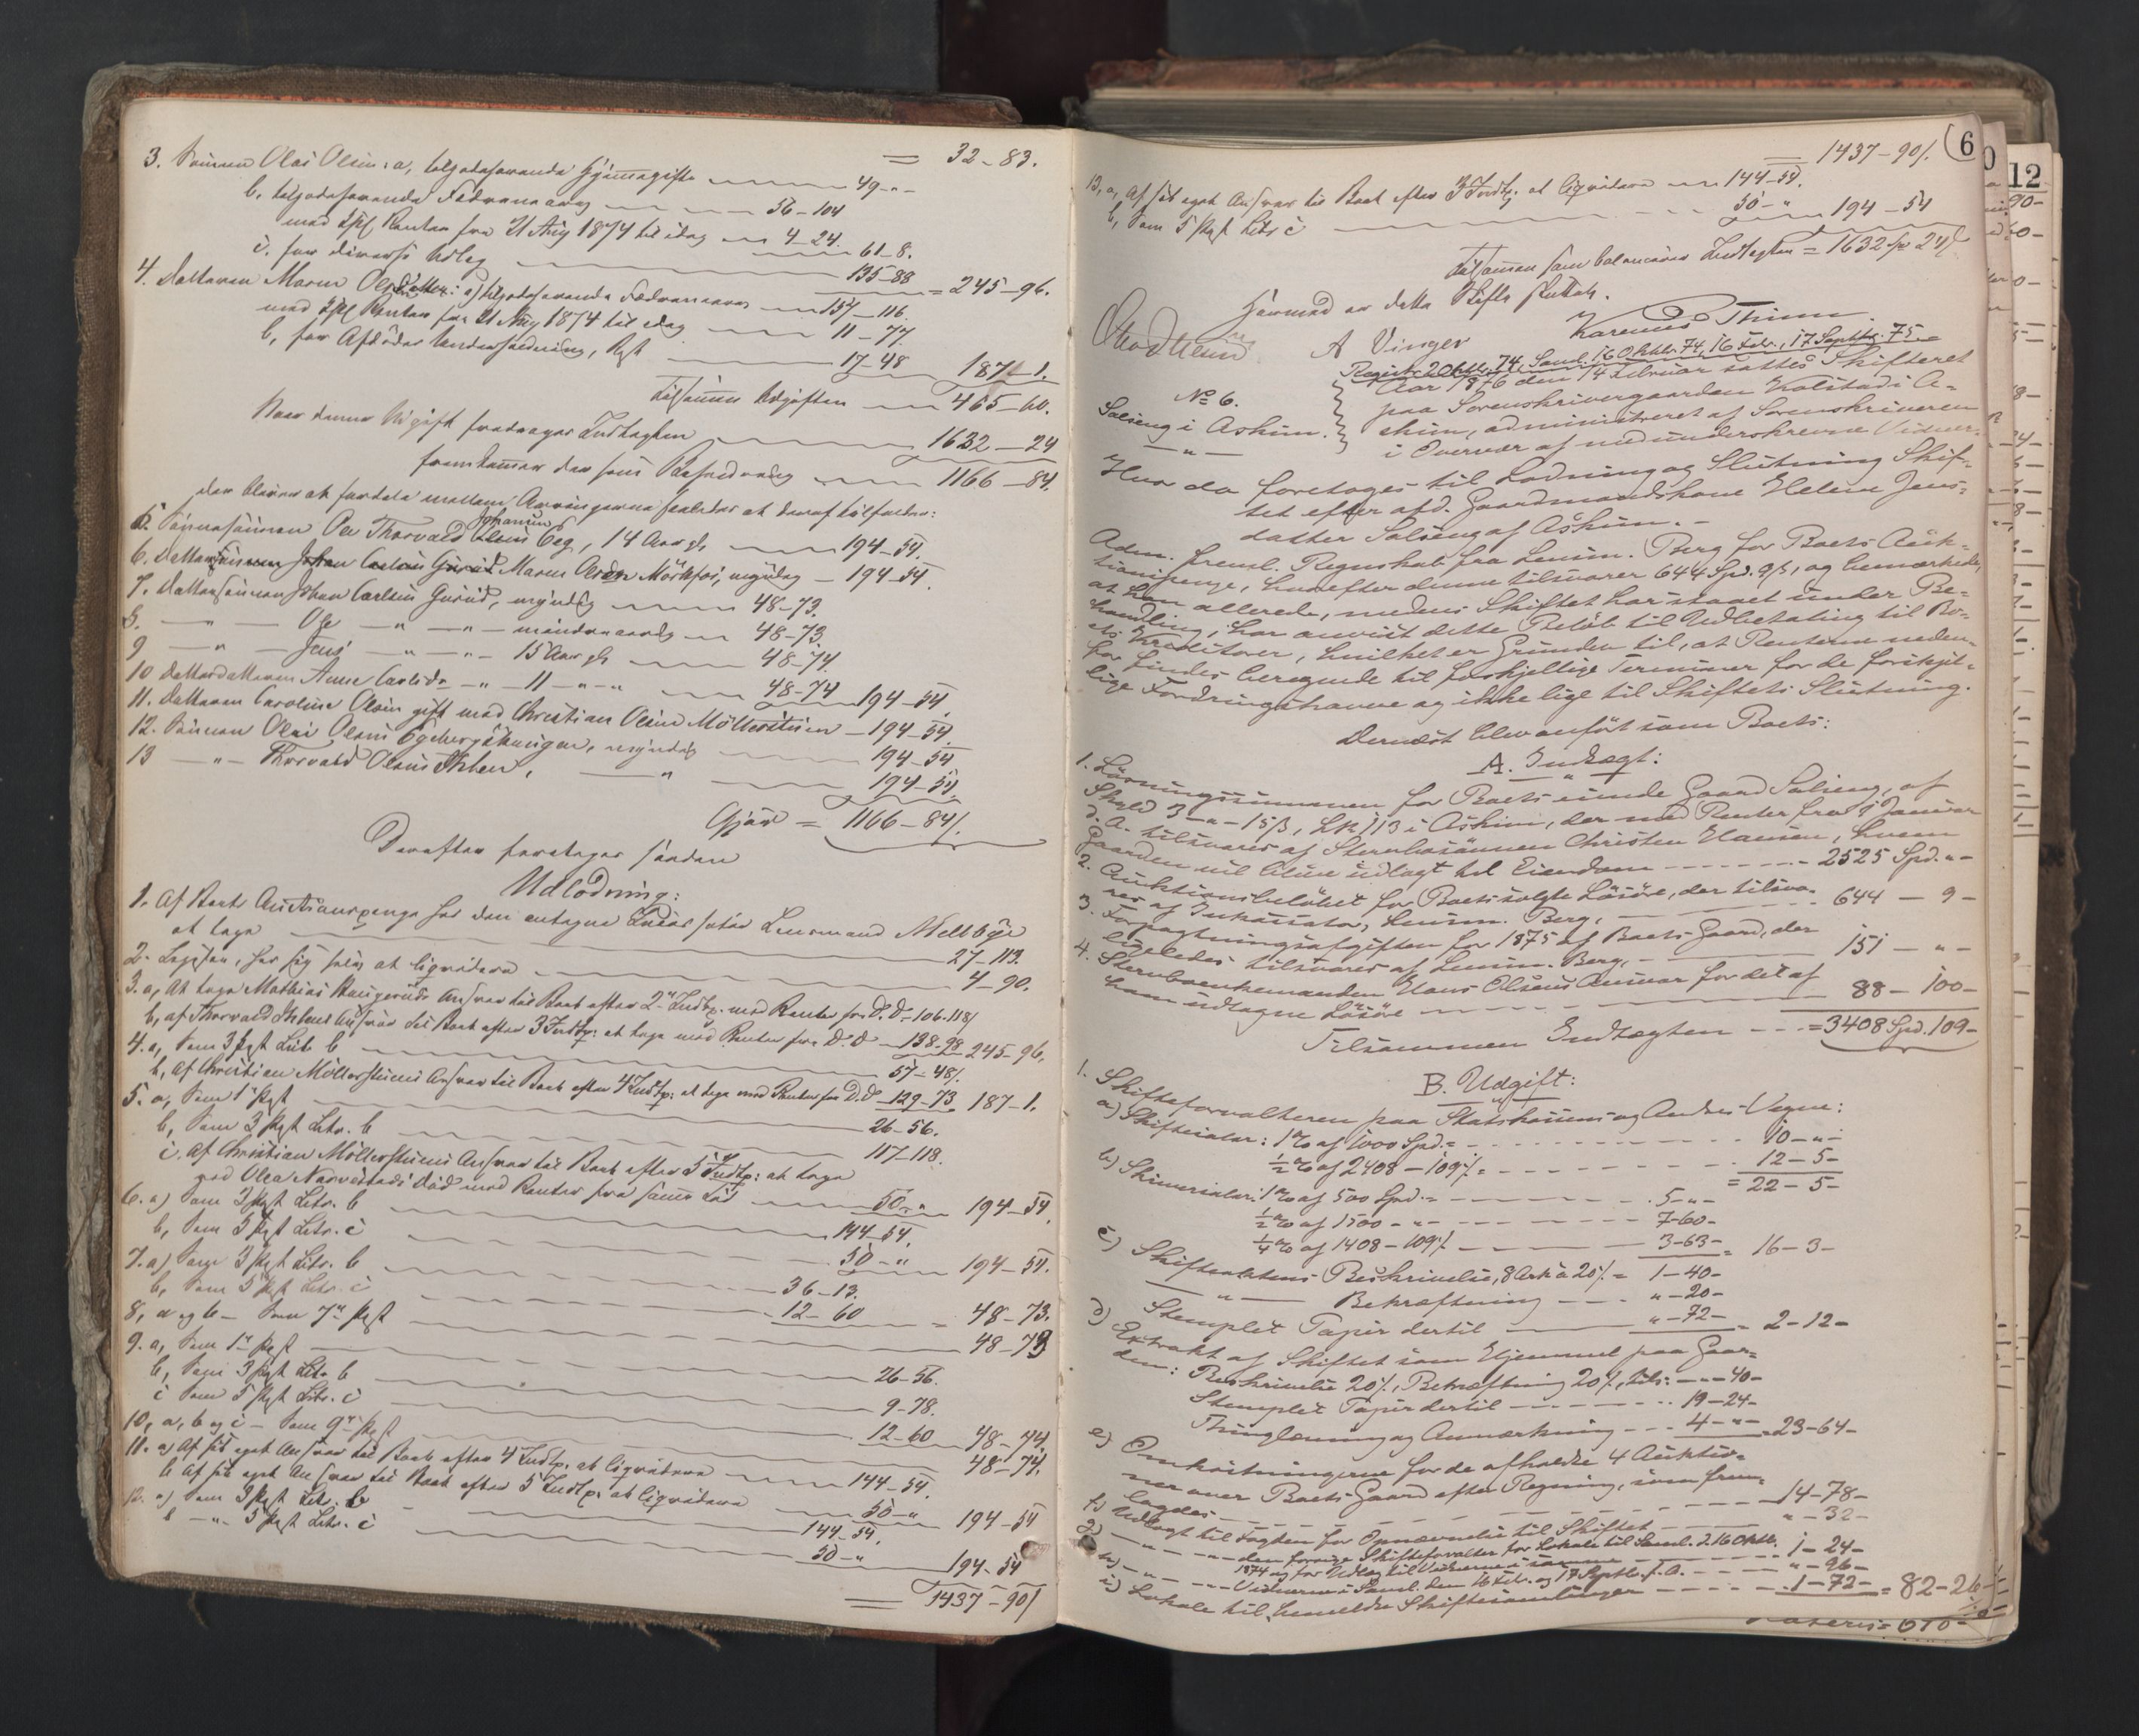 3. Sønnen Olai Olsen: a, tilgodehavende Hjemmegifte 49 - " -
= 32 - 83.
b, tilgodehavende Fædrenearv 56 - 104
med Renter fra 21 Aug 1874 til idag 4 - 24. 61 - 8.
c. for diverse Udlæg 135 - 88 = 245 - 96.
4. Datteren Maren Olsdatter: a) tilgodehavende Fædrenearv 157 - 116.
med Renter fra 21 Aug 1874 til idag 11 - 77.
b, for Afdødes Underholdning, Rest 17 - 48 187 - 1.
Tilsammen Udgiften 465 - 60.
Naar denne Udgift fradrages Indtægten 1632 - 24
fremkommer der som Beholdning 1166 - 84.
der bliver at fordele mellem Arvingerne saaledes at deraf tilfalder:
5. Sønnesønnen Ole Thorvald Johannes Eeg, 14 Aar gl. 194 - 54.
6. Maren Mörkfos, myndig - 194 - 54.
7. Dattersønnen Johan Carlsen Gúrud, myndig 48 - 73.
8. - " - Ole - " - " - mindreaarig 48 - 73.
9 - " - Jens - " - " - 15 Aar gl. 48 - 74.
10 Datterdatteren Anne Carlsdr - " - 11 - " - " 48 - 74 194 - 54.
11. Datteren Caroline Olsen gift med Christian Olsen Möllerstúen - 194 - 54.
12. Sønnen Olai Olsen, myndig 194 - 54
13 - " - Thorvald Olsen, - " - 194 - 54.
Gjør = 1166 - 84/.
Derefter foretoges saadan
Udlodning:
1. Af Boets Auctionspenge hos den antagne Lensmand Melbÿe
at tage 27 - 113.
2. Ligesaa, hos sig selv at liqvidere 4 - 90.
3. a, At tage Mathias Haugerúds Ansvar til Boet efter 2den Indtp. med Renter fra D. D = 106 - 118/
b, af Thorvald Ansvar til Boet efter 3 Indtp: at tage med Renter fra D. D - 138 - 98 245 - 96.
4. a, Som 3 Post Litr b 57 - 48/.
b, Af Christian Möllerstúens Ansvar til Boet efter 4 Indtp: at tage med Renter fra D. D - 129 - 73 187 - 1.
5. a, Som 1ste Post 26 - 56.
b, Som 3 Post Litr. b 117 - 118.
c. Af Christian Möllerstúens Ansvar til Boet efter 5 Indtp: at tage
ved Olea Død med Renter fra samme Tid 50 - " 194 - 54
6. a) Som 3 Post Litr. b 144 - 54.
b, Som 5 Post Litr. c 50 - " 194 - 54.
7. a) Som 3 Post Litr. b 36 - 13.
b, Som 5 Post Litr. c 12 - 60 = 48 - 73.
8, a og b - Som 7de Post 48 - 73
9. a, Som 1ste Post 26 - 56.
b, Som 3 Post Litr b 9 - 78.
c Som 5 Post Litr. c 12 - 60 48 - 74.
10, a, b og c - Som 9de Post 48 - 74.
11. a) Af sit eget Ansvar til Boet efter 4 Indtp. at liqvidere 144 - 54.
b Af sit eget Ansvar til Boet efter 5 Indtp. at liqvidere 50 - " 194 - 54
12. a) Som 3 Post Litr. b 144 - 54.
b - " - 5 Post Litr. c 50 - " 194 - 54
= 1437 - 90/
6
= 1437 - 90/.
13, a, Af sit eget Ansvar til Boet efter 3 Indtp. at liqvidere 144 - 54.
b, Som 5 Post Litr c 50 - " 194 - 54
Tilsammen som balancerer Indtægten = 1632 Sp 24 /
Hermed er dette Skifte sluttet.
A Vinger
Karenus Thun
Registr. 2 Oktbr. 74, Saml. 16 Oktbr. 74, 16 Febr., 17 Septbr. 75 -
No 6.
Salieng i Askim.
Aar 1876 den 14 Februar sattes Skifteret
paa Sorenskrivergaarden Kolstad i A-
skim, administreret af Sorenskriveren
i Overvær af nedunderskrevne Vidner.
Hvor da foretoges til Lodning og Slutning Skif-
tet efter afd. Gaardmandskone Helene Jens-
datter Salieng af Askim. -
Adm. freml. Regnskab fra Lensm. Berg for Boets Auk-
tionspenge, hvorefter denne tilsvarer 644 Spd. 9ß, og bemærkede,
at han allerede, medens Skiftet har staaet under Be-
handling, har anvist dette Beløb til Udbetaling til Bo-
ets Kreditorer, hvilket er Grunden til, at Renterne neden-
for findes beregnede til forskjellige Terminer for de forskjel-
lige Fordringshavere og ikke lige til Skiftets Slutning.
Dernæst blev anført som Boets:
A. Indtægt:
1. Løsningssummen for Boets eiende Gaard Salieng, af
Skyld 3 - " - 15ß, LN 113 i Askim, der med Renter fra 1 Januar
d. A. tilsvares af Stervbosønnen Christen Hansen, hvem
Gaarden vil blive udlagt til Eiendom 2525 Spd. " -
2. Auktionsbeløbet for Boets solgte Løsøre, der tilsva-
res af Inkassator, Lensm. Berg, 644 - 9 -
3. Forpagtningsafgiften for 1875 af Boets Gaard, der
ligeledes tilsvares af Lensm. Berg, 151 - " -
4. Stervboenkemanden Hans Olsens Ansvar for det af
ham udtagne Løsøre 88 - 100 -
Tilsammen Indtægten = 3408 Spd. 109 -
B. Udgift:
1. Skifteforvalteren paa Statskassens og Andres Vegne:
a) Skiftesalær: 1 % af 1000 Spd. = 10 - " -
½ % af 2408 - 109/. = 12 - 5 -
= 22 - 5 -
b) Skriversalær: 1 % af 500 Spd. = 5 - " -
½ % af 1500 - " - 7 - 60 -
¼ % af 1408 - 109/. 3 - 63 - = 16 - 3 -
c) Skifteaktens Beskrivelse, 8 Ark à 20/. = 1 - 40 -
- " - Bekræftning " - 20 -
Stemplet Papir dertil " - 72 - = 2 - 12 -
d) Extrakt af Skiftet som Hjemmel paa Gaar-
den: Beskrivelse 20/., Bekræftning 20/., tils: - " - 40 -
Stemplet Papir dertil 19 - 24 -
Thinglæsning og Anmærkning 4 - " - = 23 - 64 -
e) Omkostningerne for de afholdte 4 Auktio-
ner over Boets Gaard efter Regning, som frem-
lagdes 14 - 78 -
f) Udlagt til Fogden for Opnævnelse til Skiftet " - 32 -
g) - " - - " - den forrige Skifteforvalter for Lokale til Saml. d. 16 Oktbr.
1874 og for Udlæg til Vidnerne i samme 1 - 24 -
h) - " - - " - Vidnerne i Saml. den 16 Febr. og 17 Septbr. f. A. " - 96 -
i) Lokale til bemeldte Skiftesamlinger 1 - 72 - = 82 - 26 -
12